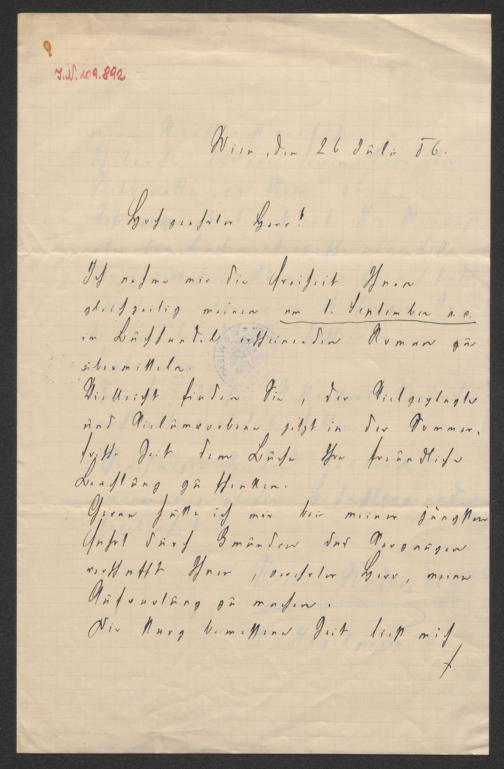 J.N. 109.892
Wien, den 26 Juli 86.
Hochgeehrter Herr!
Ich nehme mir die Freiheit Ihnen
gleichzeitig meinen am 1. September a.c.
im Buchhandel erscheinenden Roman zu
übermitteln.
Vielleicht finden Sie, der Vielgeplagte
und Vielumworbene jetzt in der Sommer-
frische Zeit dem Buche Ihre freundliche
Beachtung zu schenken.
Gerne hätte ich mir bei meiner jüngsten
Fahrt durch Gmunden das Vergnügen
verschafft Ihnen, verehrter Herr, meine
Aufwartung zu machen.
Die kurz bemessene Zeit ließ mich